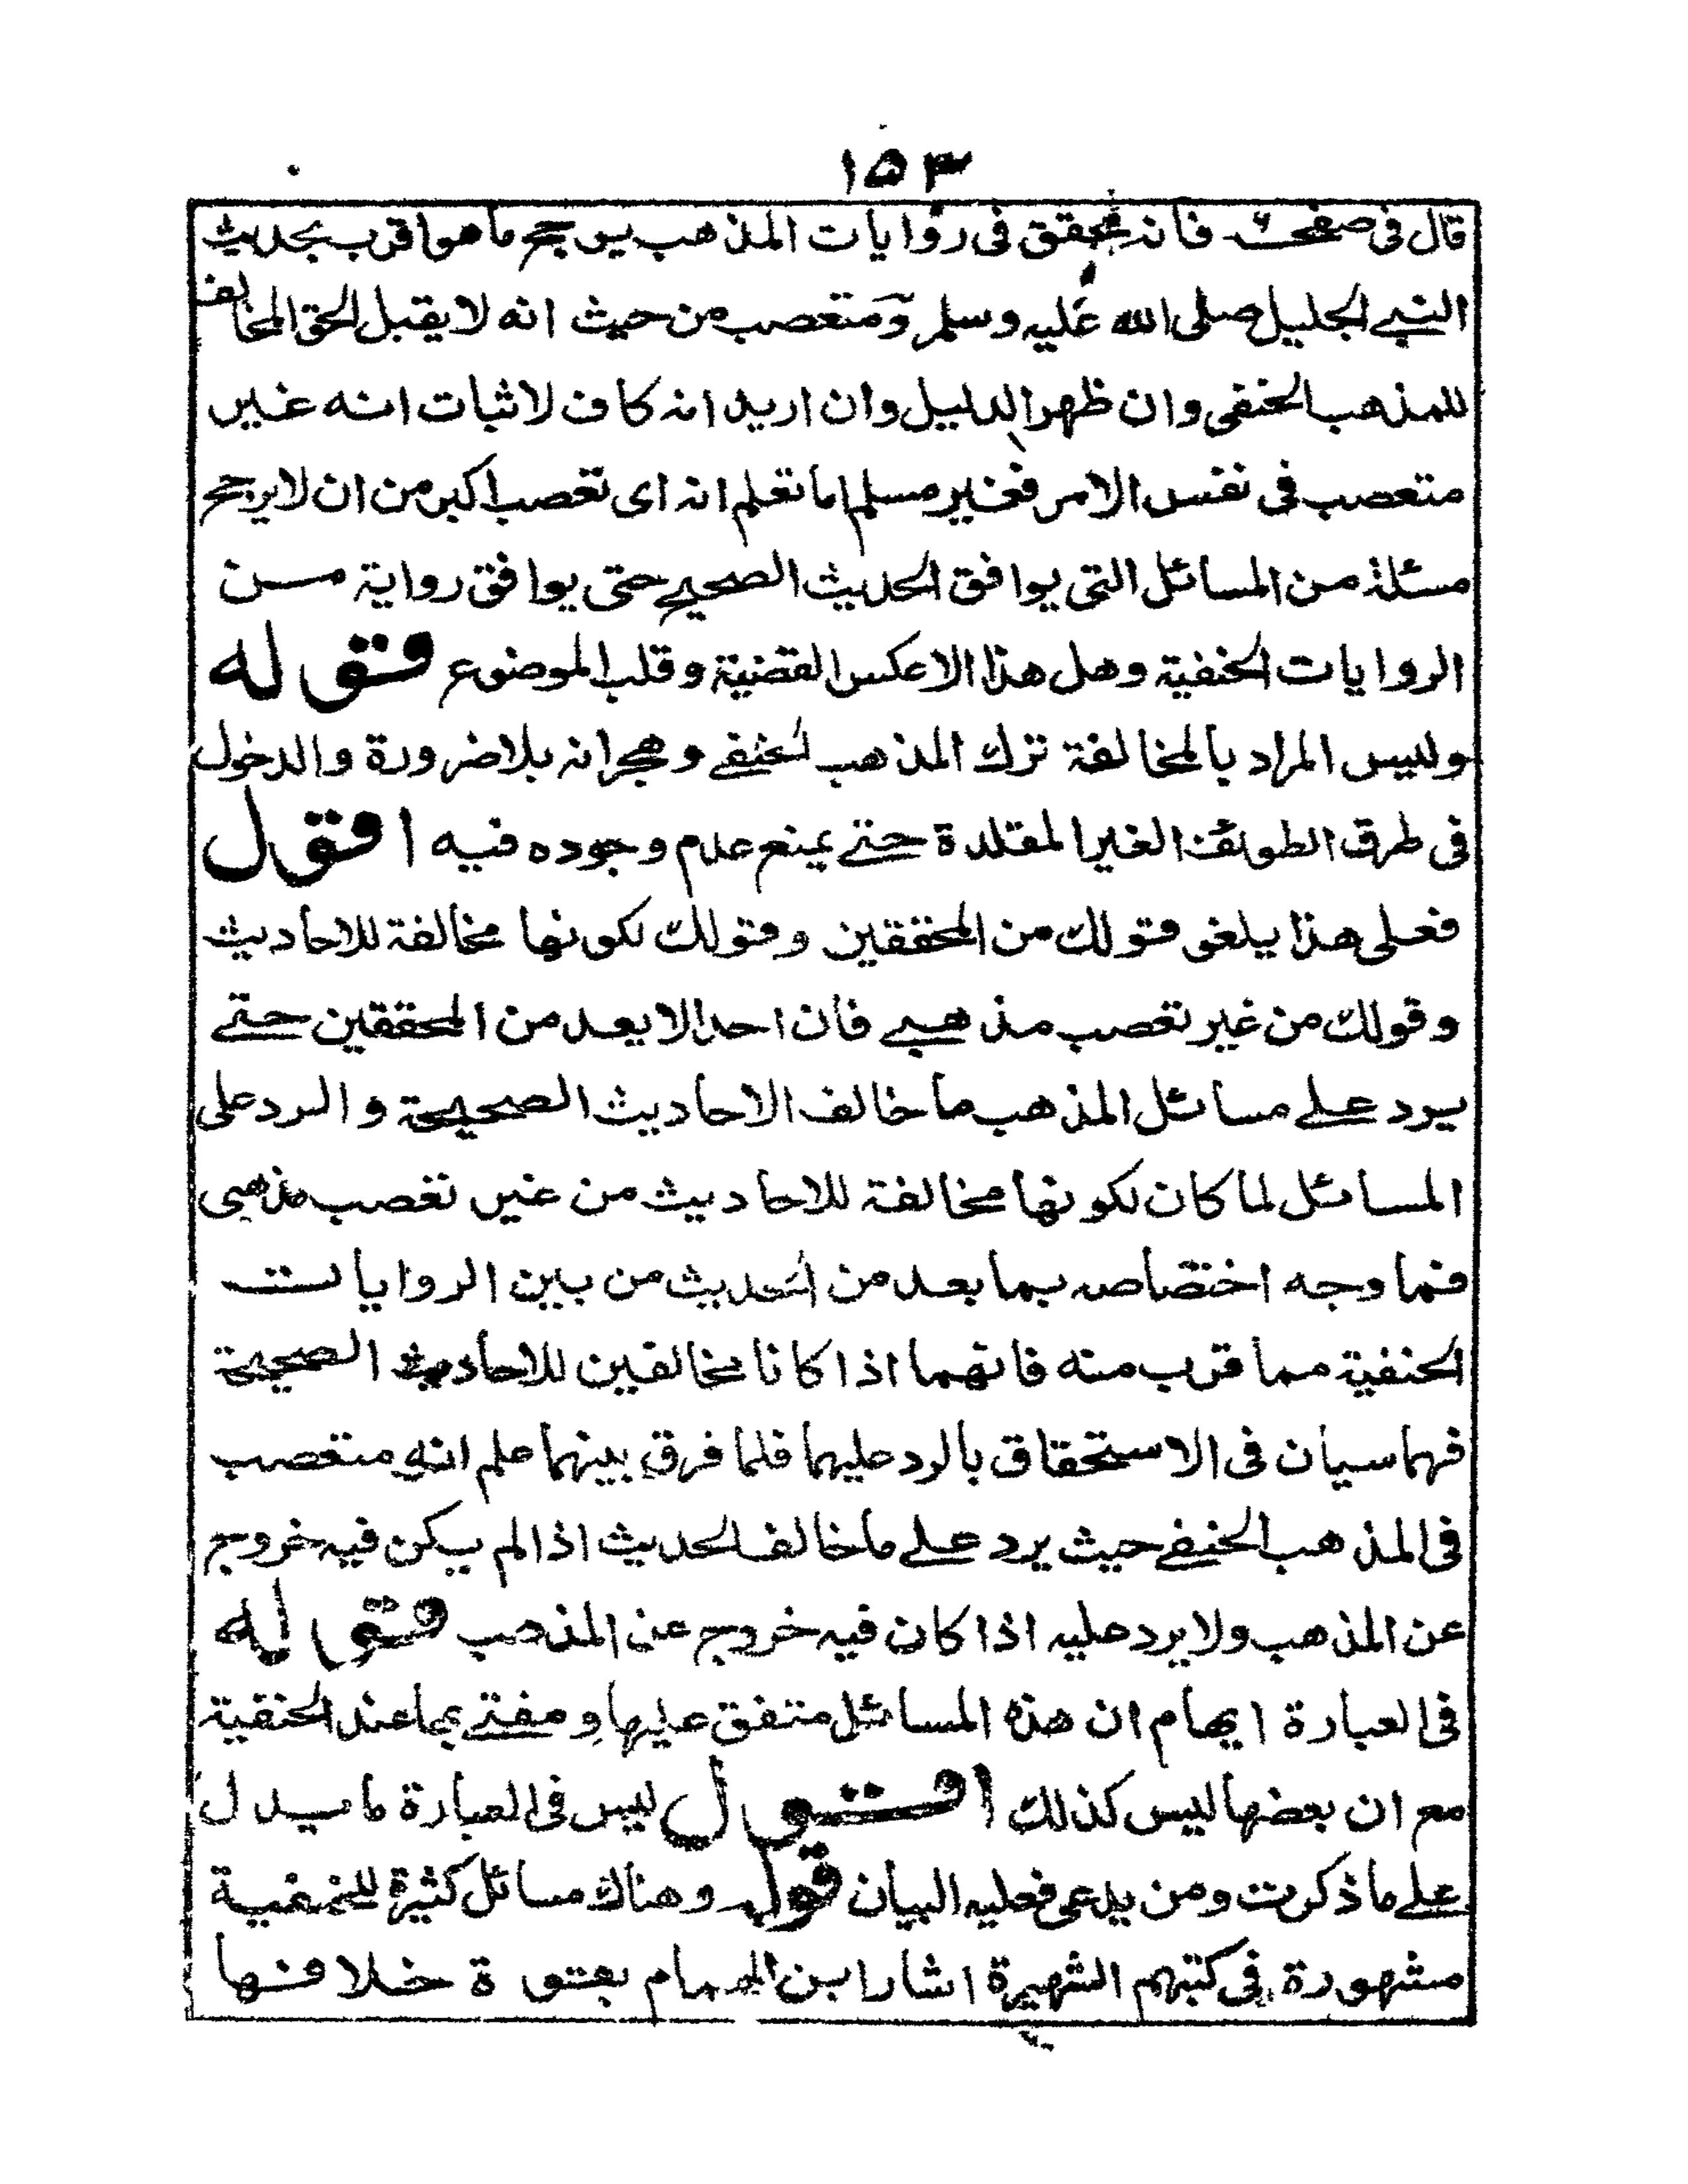 ١٥٣
قال فى صفحـ فانه محقق فى روايات المذهب يرجح ما هو اقرب بحديث
النبى الجليل صلى الله عليه وسلم ومتعصب من حيث انه لا يقبل الحق المخالف
للمذهب الحنفى وان ظهر الدليل وان اريد انه كاف لاثبات انه غير
متعصب فى نفس الامر فغير مسلم اما تعلم انه اى تعصب اكبر من ان لا يرجح
مسئلة من المسائل التى يوافق الحديث الصحيح حتى يوافق رواية من
الروايات الحنفية وهل هذا الا عكس القضية وقلب الموضوع قوله
وليس المراد بالمخالفة ترك المذهب الحنفى وهجرانه بلا ضرورة والدخول
فى طرق الطوائف الغير المقلدة حتى يمنع عدم وجوده فيه اقول
فعلى هذا يلغو قولك من المحققين وقولك لكونها مخالفة للاحاديث
وقولك من غير تعصب مذهبى فان احدا لا يعد من المحققين حتى
يرد على مسائل المذهب ما خالف الاحاديث الصحيحة والرد على
المسائل لما كان لكونها مخالفة للاحاديث من غير تعصب مذهبى
فما وجه اختصاصه بما بعد من الحديث من بين الروايات
الحنفية مما قرب منه فانهما اذا كانا مخالفين للاحاديث الصحيحة
فهما سيان فى الاستحقاق بالرد عليهما فلما فرق بينهما علم انه متعصب
فى المذهب الحنفى حيث يرد على ما خالف الحديث اذا لم يكن فيه خروج
عن المذهب ولا يرد عليه اذا كان فيه خروج عن المذهب قوله
فى العبارة ايهام ان هذه المسائل متفق عليها ومفتى بها عند الحنفية
مع ان بعضها ليس كذلك اقول ليس فى العبارة ما يدل
على ما ذكرت ومن يدعى فعليه البيان قوله وهناك مسائل كثيرة للحنفية
مشهورة فى كتبهم الشهيرة اشار ابن الهمام بقوة خلافها